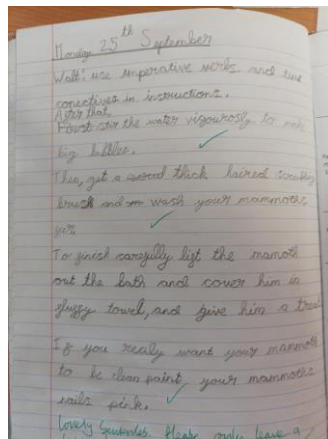 Monday 25th September
Walt: use imperative verbs and time
conectives in instructions.
After that,
stir the water vigourosly to make
big bubbles.
Then, get a thick haired scrubbing
brush and wash your mammoths
fur.
To finish carefully lift the mamoth
out the bath and cover him in
fluffy towel, and give him a treat
If you realy want your mammoth
to be clean paint your mammoths
nails pink.
Lovely sentences. Please only leave a